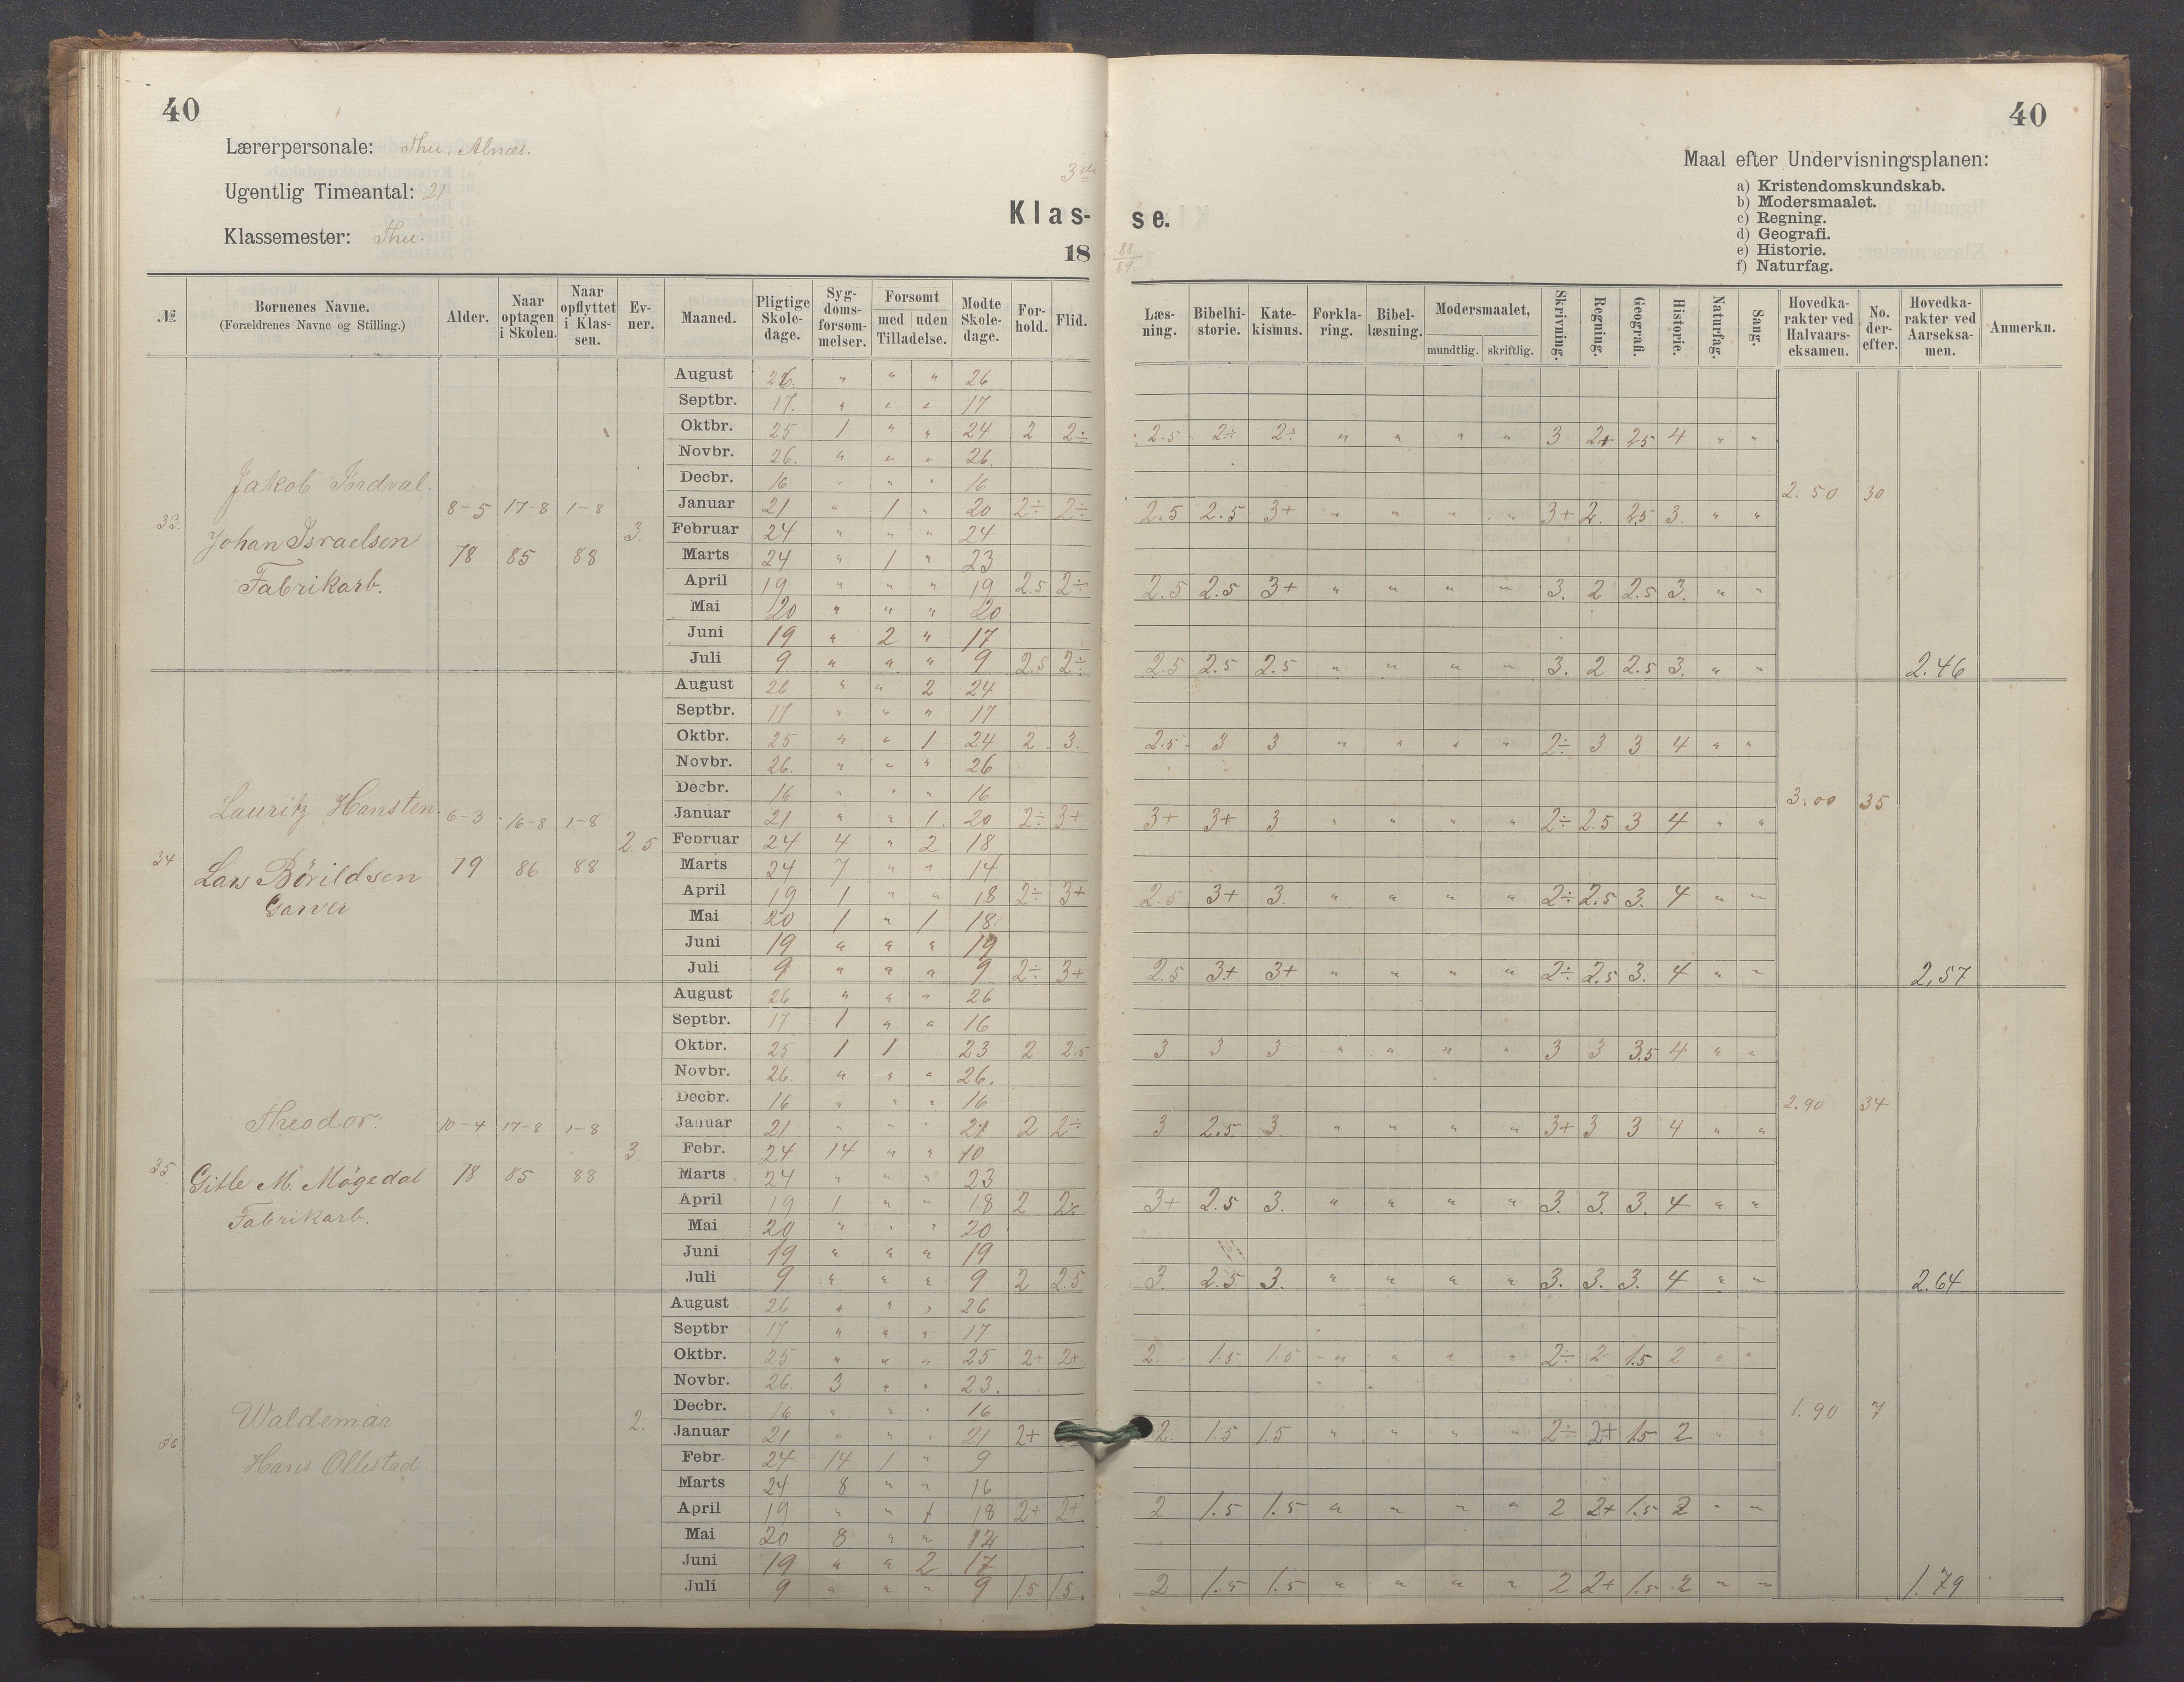 40
40
Lærerpersonale: Thu, Alnæs.
Ugentlig Timeantal: 21
Klassemester: Thu.
3de
Klas- se.
18 88/89.
Maal efter Undervisningsplanen:
a) Kristendomskundskab.
b) Modersmaalet.
c) Regning.
d) Geografi.
e) Historie.
f) Naturfag.
№ | Børnenes Navne. (Forældrenes Navne og Stilling.) | Alder. | Naar optagen i Skolen. | Naar opflyttet i Klassen. | Evner. | Maaned. | Pligtige Skoledage. | Sygdomsforsommelser. | Forsomt med uden Tilladelse. | Mødte Skoledage. | Forhold. | Flid. | Læsning. | Bibelhistorie. | Katekismus. | Forklaring. | Bibellæsning. | Modersmaalet, mundtlig. skriftlig. | Skrivning. | Regning. | Geografi. | Historie. | Naturfag. | Sang. | Hovedkarakter ved Halvaarseksamen. | No. derefter. | Hovedkarakter ved Aarseksamen. | Anmerkn.
33. Jakob Indval.
Johan Israelsen
Fabrikarb.
8-5 78 | 17-8 85 | 1-8 88 | 3.
August 26. " " " 26
Septbr. 17. " " " 17
Oktbr. 25 1 " " 24 2 2÷ 2.5 2÷ 2÷ " " " " 3 2+ 2.5 4 " "
Novbr. 26. " " " 26.
Decbr. 16 " " " 16
Januar 21 " 1 " 20 2÷ 2÷ 2.5 2.5 3+ " " " " 3+ 2. 2.5 3. " " 2.50 30
Februar 24 " " " 24
Marts 24 " 1 " 23
April 19 " " " 19 2.5 2÷ 2.5 2.5 3+ " " " " 3. 2 2.5 3. " "
Mai 20 " " " 20
Juni 19 " 2 " 17
Juli 9 " " " 9 2.5 2÷ 2.5 2.5 2.5 " " " " 3. 2 2.5 3. " " 2.46
34 Lauritz Hansten.
Lars Börildsen
Garver
6-3 79 | 16-8 86 | 1-8 88 | 2.5
August 26 " " 2 24
Septbr. 17 " " " 17
Oktbr. 25 " " 1 24 2. 3. 2.5 3 3 " " " " 2÷ 3 3 4 " "
Novbr. 26. " " " 26
Decbr. 16 " " " 16
Januar 21 " " 1. 20 2÷ 3+ 3+ 3+ 3 " " " " 2÷ 2.5 3 4 " " 3.00 35
Februar 24 4 " 2 18
Marts 24 7 " " 14
April 19 1 " " 18 2÷ 3+ 2.5 3+ 3. " " " " 2÷ 2.5 3. 4 " "
Mai 20 1 " 1 18
Juni 19 " " " 19
Juli 9 " " " 9 2÷ 3+ 2.5 3+ 3+ " " " " 2÷ 2.5 3. 4 " " 2,57
35 Theodor.
Gitle M. Mögedal
Fabrikarb.
10-4 78 | 17-8 85 | 1-8 88 | 3.
August 26 " " " 26
Septbr. 17 1 " " 16
Oktbr. 25 1 1 23 2 2.5 3 3 3 " " " " 3 3 3.5 4 " "
Novbr. 26. " " " 26.
Decbr. 16 " " " 16
Januar 21 " " " 21 2 2÷ 3 2.5. 3. " " " " 3+ 3 3 4 " " 2.90 34
Febr. 24 14 " " 10
Marts 24 " " " 23
April 19 1 " " 18 2 3+ 2.5 3. " " " " 3. 3. 3. 4 " "
Mai 20 " " " 20
Juni 19 " " " 19
Juli 9 " " " 9 2 2.5 3. 2.5 3. " " " " 3. 3. 3. 4 " " 2.64
36 Waldemar
Hans Ollestad
2.
August 26 " " " 26
Septbr 17 " " " 17
Oktbr. 25 " " " 25 2+ 2+ 2. 1.5 1.5 " " " " 2÷ 2 1.5 2 " "
Novbr. 26. 3 " " 23.
Decbr. 16 " " " 16
Januar 21 " " " 21 2+ 2. 1.5 1.5 " " " " 2÷ 2+ 1.5 2 " " 1.90 7
Febr. 24 14 1 " 9
Marts 24 8 " " 16
April 19 " " 1 18 2+ 2+ 2 1.5 1.5 " " " " 2 2+ 1.5 2 " "
Mai 20 8 " " 12
Juni 19 " " 2 17
Juli 9 " " " 9 1.5 1.5. 2 1.5 1.5 " " " " 2 2+ 1.5 2 " " 1.79